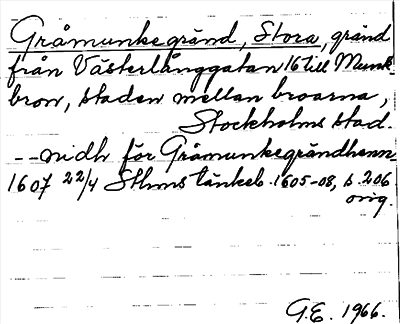 Gråmunkegränd, Stora, gränd
från Västerlånggatan 16 till Munk-
bron, staden mellan broarna,
Stockholms stad.
-- nidh för Gråmunkegrändhenn
1607 22/4 Sthms tänkeb. 1605-08, s. 206
orig.
G.E. 1966.